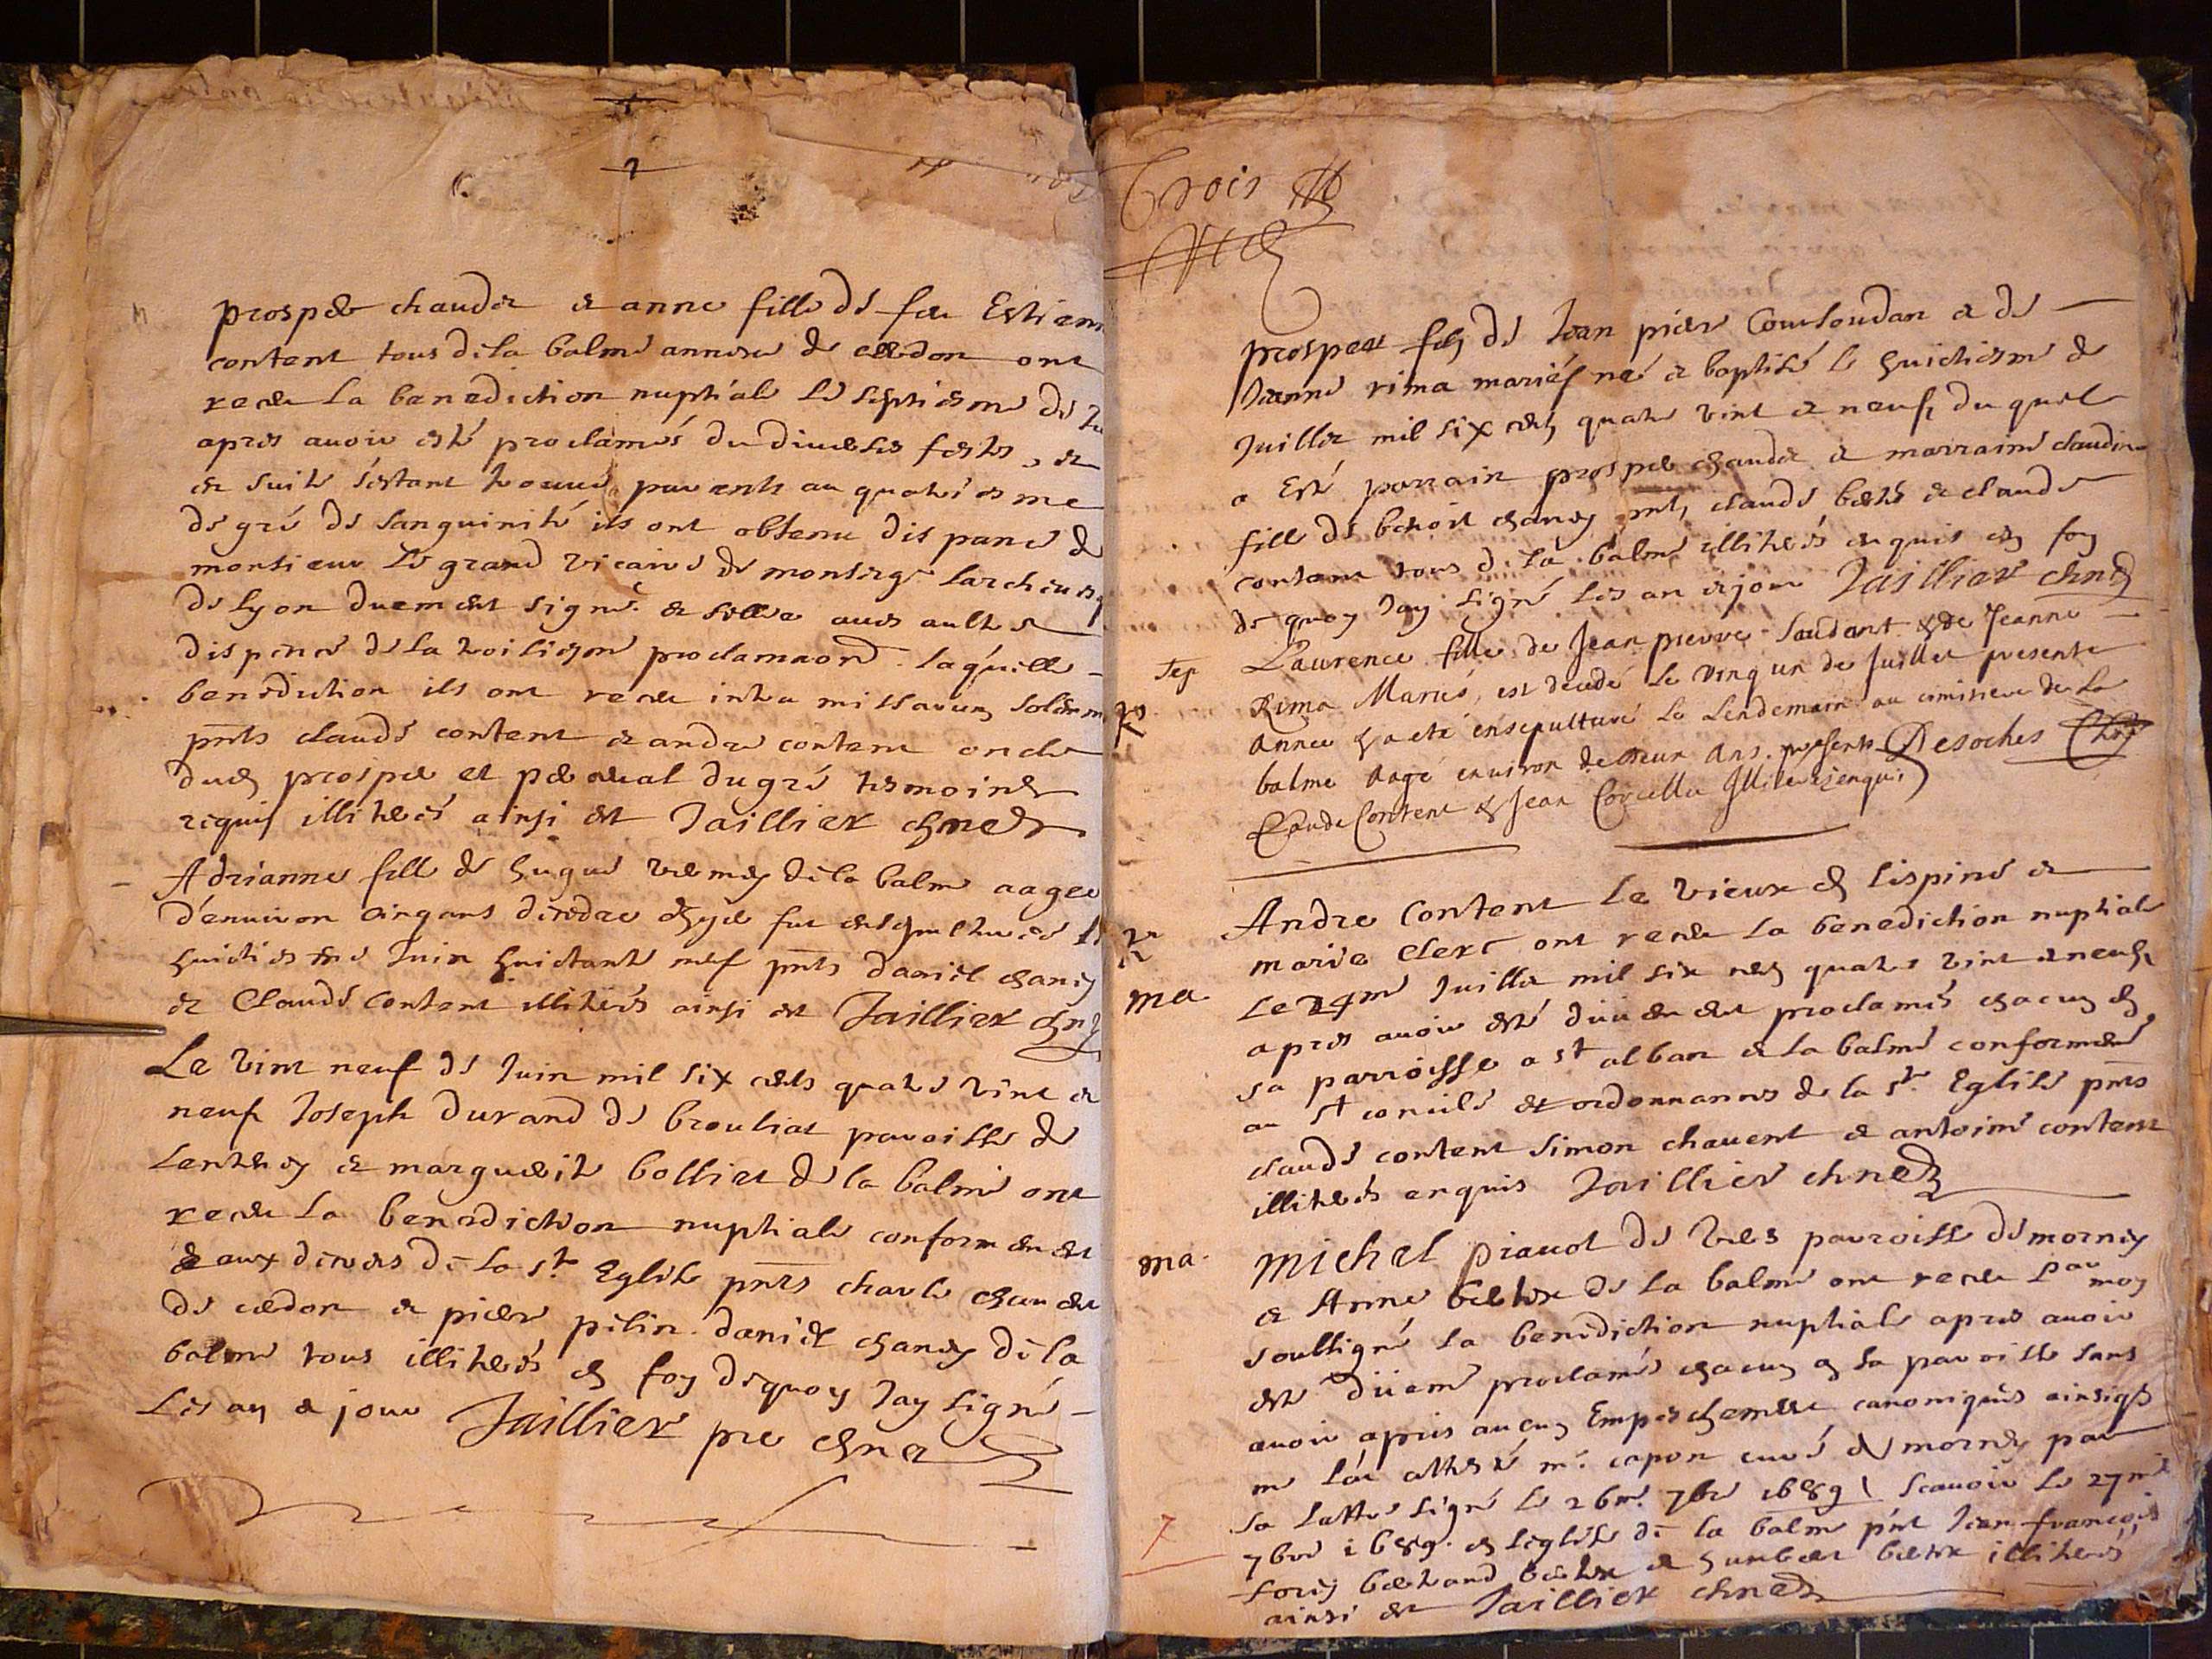 2
prosper chaudet et anne fille de feu Estienne
content tous de la balme annexe de cerdon ont
receu la benediction nuptiale le septiesme de
apres avoir esté proclamés de diverses festes, et
en suite s'estant trouvé parents au quatriesme
degré de sanguinité ils ont obtenu dispance de
monsieur le grand vicaire de monseigr larchevesq
de lyon duement signé et sellée avec aultre
dispence de la troisiesme proclamaon. laquelle
benediction ils ont receu intra missarum solemn
pnts claude content et andre content oncle
dud prosper et perceval dugré tesmoins
requis illiterés ainsi est Jaillier
Adrianne fille de hugue vermey de la balme aagee
d'environ cinq ans fut ensepulturée le
huictiesme Juin huictante neuf pnts daniel chaney
et Claude content illiterés ainsi est Jaillier
Le vint neuf de Juin mil six cents quatre vint et
neuf Joseph durand de brouliat parroisse de
lenteney et marguerite bolliet de la balme ont
receu la benediction nuptiale conformement
aux decrets de la ste Eglise pnts charle
de cerdon et pierre pelin daniel chaney de la
balme tous illiterés en foy dequoy Jay signé
les an et jour Jaillier pre
Trois
prosper fils de Jean pierre Coursoudan et de
Jeanne rima mariés né et baptisé le huictiesme de
Juillet mil six cents quatre vint et neuf, du quel
a Esté parrain prosper chaudet et marraine claudine
fille de benoit chaney pnts, claude berthe et claude
content tous de la balme illiterés enquis en foy
de quoy Jay signé les an et jour Jaillier
Sep Laurence fille de Jean pierre Soudant & de Jeanne
Rima Mariés, est decedé le vingt un de Juillet presente
Annee & a eté ensepulturé le Lendemain au cimitiere de La
balme Aagé environ de deux Ans. presents Desoches
Claude Content & Jean Corcella Illiterés enquis
Andre Content le vieux de lespine et
marie Clerc ont receu la benediction nuptiale
ma le 24me Juillet mil six cens quatre vint et neuf,
apres avoir esté duement proclamés chacun en
sa parroisse a st alban et la balme conformement
au st concile et ordonnances de la ste Eglise pnts
claude content simon chavent et antoine content
illiterés enquis Jaillier
ma. Michel piavot de vers parroisse de mornay
et Anne berthe de la balme ont receu par moy
soubsigné la benediction nuptiale apres avoir
esté düem proclamés chacun en sa parroisse sans
avoir apris aucun Empeschement canoniques ainsi q
me la attesté mr. capon curé de mornay par
sa lettre signé le 26me 7bre 1689 scavoir le 27me
7bre 1689. en leglise de la balme pnt Jean francois
bertrand berthe et humbert berthe illiterés
ainsi est Jaillier